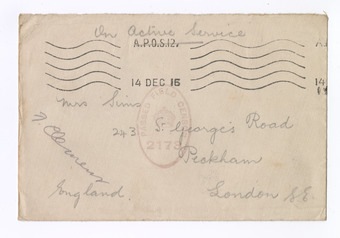 On Active Service
A.P.O.S.12.
14 DEC 16
14
Mrs Sims
243 St George's Road
Peckham
London S.E.
England.
PASSED FIELD CENSOR
2173